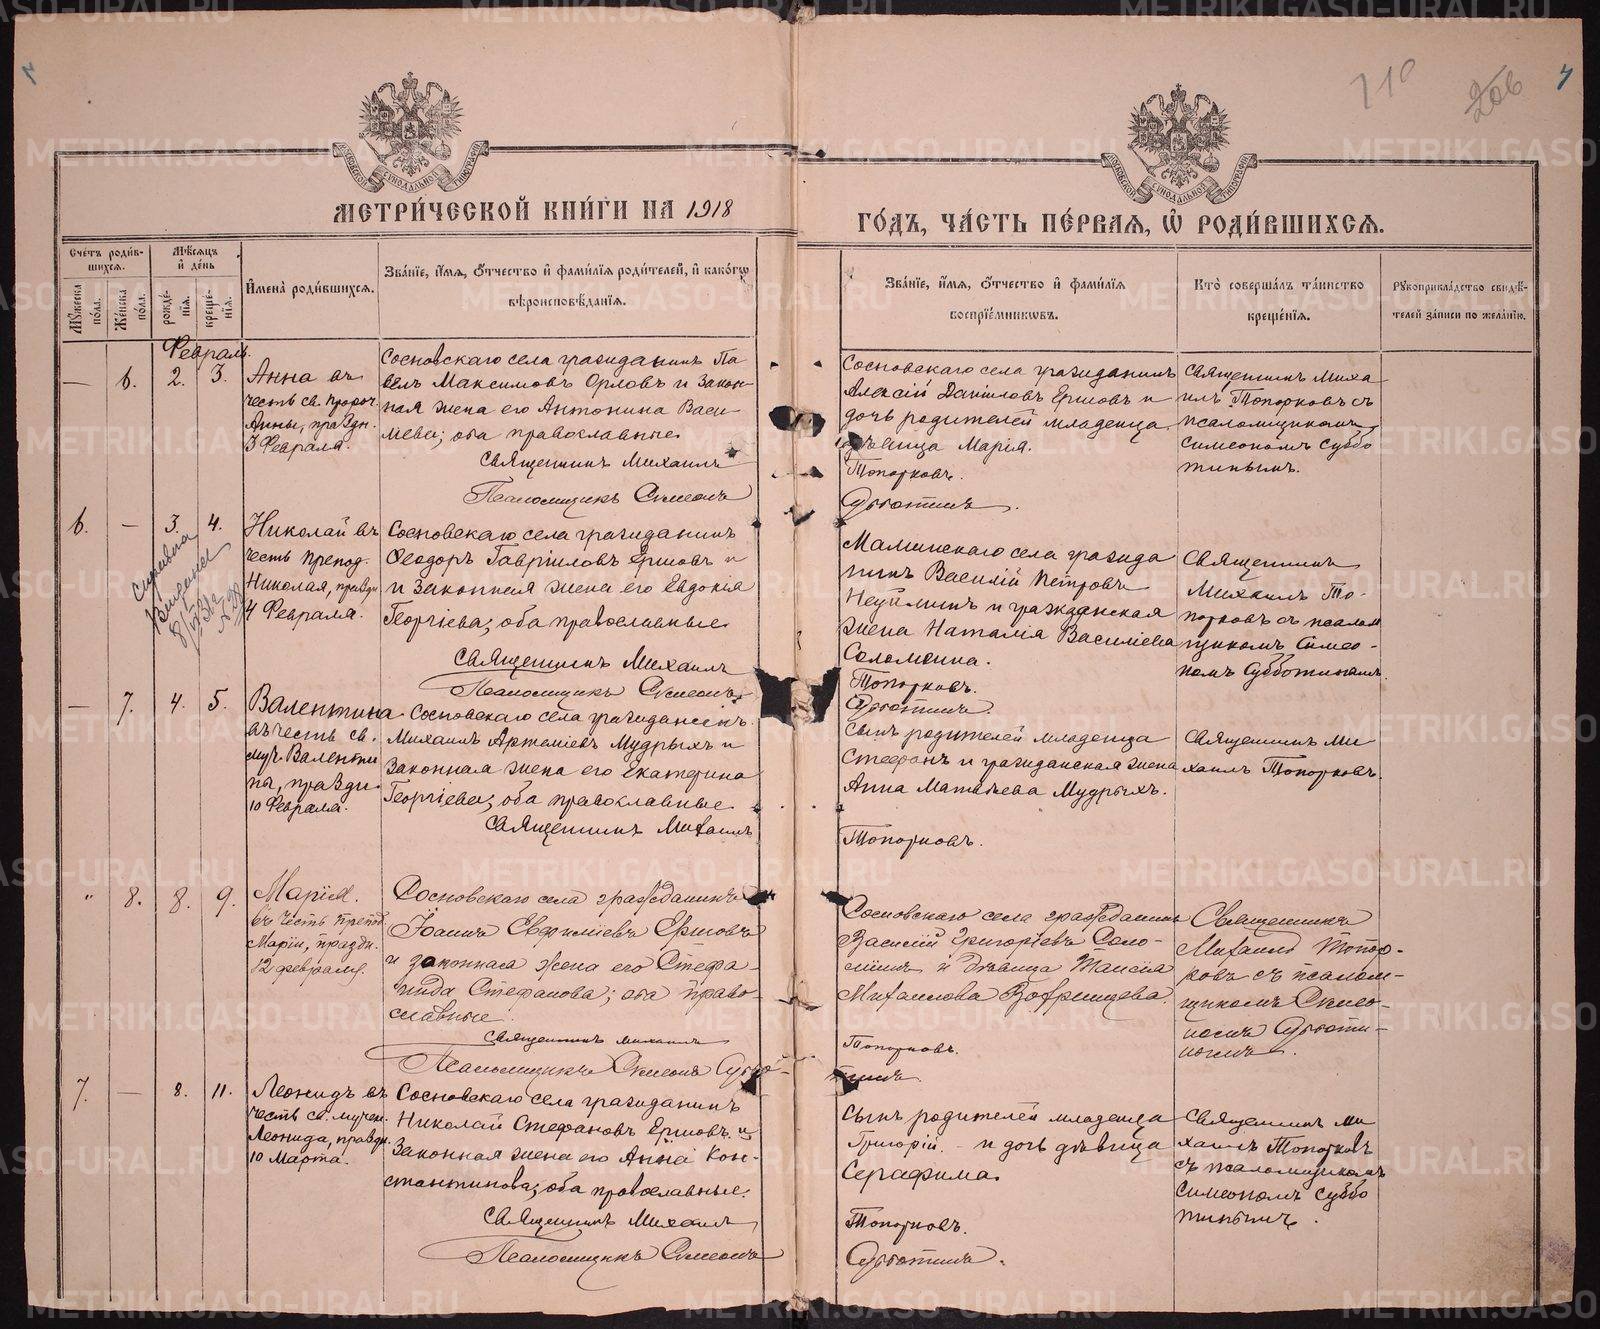 7
710
206
7
МЕТРИ́ЧЕСКОЙ КНИ́ГИ НА 1918
ГО́ДЪ, ЧА́СТЬ ПЕ́РВАѦ, Ѡ҆ РОДИ́ВШИХСѦ.
Сче́тъ роди́в-
шихсѧ.
Мꙋ́жеска
по́ла.
Же́нска
по́ла.
Мѣ́сѧцъ
и҆ де́нь
рожде́-
нїѧ.
креще́-
нїѧ.
И҆мена̀ роди́вшихсѧ.
Зва́нїе, и҆́мѧ, ѻ҆́тчество и҆ фами́лїѧ роди́телей, и҆ како́гѡ
вѣроисповѣ́данїѧ.
Зва́нїе, и҆́мѧ, ѻ҆́тчество и҆ фами́лїѧ
воспрїе́мникѡвъ.
Кто̀ соверша́лъ та́инство
креще́нїѧ.
Рꙋкоприкла́дство свидѣ́-
телей за́писи по жела́нїю.
Февраль.
— 6. 2. 3.
Анна въ
честь св. пророч.
Анны, праздн.
3 Февраля.
Сосновскаго села гражданинъ Па
велъ Максимовъ Орловъ и закон-
ная жена его Антонина Васи
лiева; оба православные
Священникъ Михаилъ
Псаломщикъ Симеонъ
Сосновскаго села гражданинъ
Алексiй Данiиловъ Ершовъ и
дочь родителей младенца
дѣвица Марiя.
Топорковъ.
Субботинъ.
Священникъ Миха
илъ Топорковъ съ
псаломщикомъ
Симеономъ Суббо
тинымъ.
6. — 3. 4.
Справка
выдана
Николай въ
честь препод.
Николая, праздн
4 Февраля.
Сосновскаго села гражданинъ
Ѳеодоръ Гаврiиловъ Ершовъ и
и законная жена его Евдокiя
Георгiева; оба православные
Священникъ Михаилъ
Псаломщикъ Симеонъ
Маминскаго села гражда
нинъ Василiй Петровъ
Неуйминъ и гражданская
жена Наталiя Василiева
Соломеина.
Топорковъ.
Субботинъ.
Священникъ
Михаилъ То-
порковъ съ псалом
щикомъ Симео-
номъ Субботинымъ.
— 7. 4. 5.
Валентина
въ честь св.
муч. Валенти
ны, праздн.
10 Февраля.
Сосновскаго села гражданинъ
Михаилъ Артемiевъ Мудрыхъ и
законная жена его Екатерина
Георгiева; оба православные
Священникъ Михаилъ
Сынъ родителей младенца
Стефанъ и гражданская жена
Анна Матвѣева Мудрыхъ.
Топорковъ.
Священникъ Ми
хаилъ Топорковъ.
" 8. 8. 9.
Марiя.
въ честь препод.
Марiи, праздн.
12 февраля.
Сосновскаго села гражданинъ
Iоаннъ Евфимiевъ Ершовъ
и законная жена его Стефа-
нида Стефанова; оба право-
славные.
Священникъ Михаилъ
Псаломщикъ Симеонъ Суббо-
Сосновскаго села гражданинъ
Василiй Григорiевъ Соло-
меинъ и дѣвица Таисiя
Михаилова Вотринцева.
Топорковъ.
тинъ
Священникъ
Михаилъ Топор-
ковъ съ псалом-
щикомъ Симео-
номъ Субботи-
нымъ.
7. — 8. 11.
Леонидъ въ
честь св. мучен.
Леонида, праздн.
10 Марта.
Сосновскаго села гражданинъ
Николай Стефановъ Ершовъ и
законная жена его Анна Кон-
стантинова; оба православные.
Священникъ Михаилъ
Псаломщикъ Симеонъ
Сынъ родителей младенца
Григорiй и дочь дѣвица
Серафима.
Топорковъ.
Субботинъ.
Священникъ Ми
хаилъ Топорковъ
съ псаломщикомъ
Симеономъ Суббо
тинымъ.
METRIKI.GASO-URAL.RU